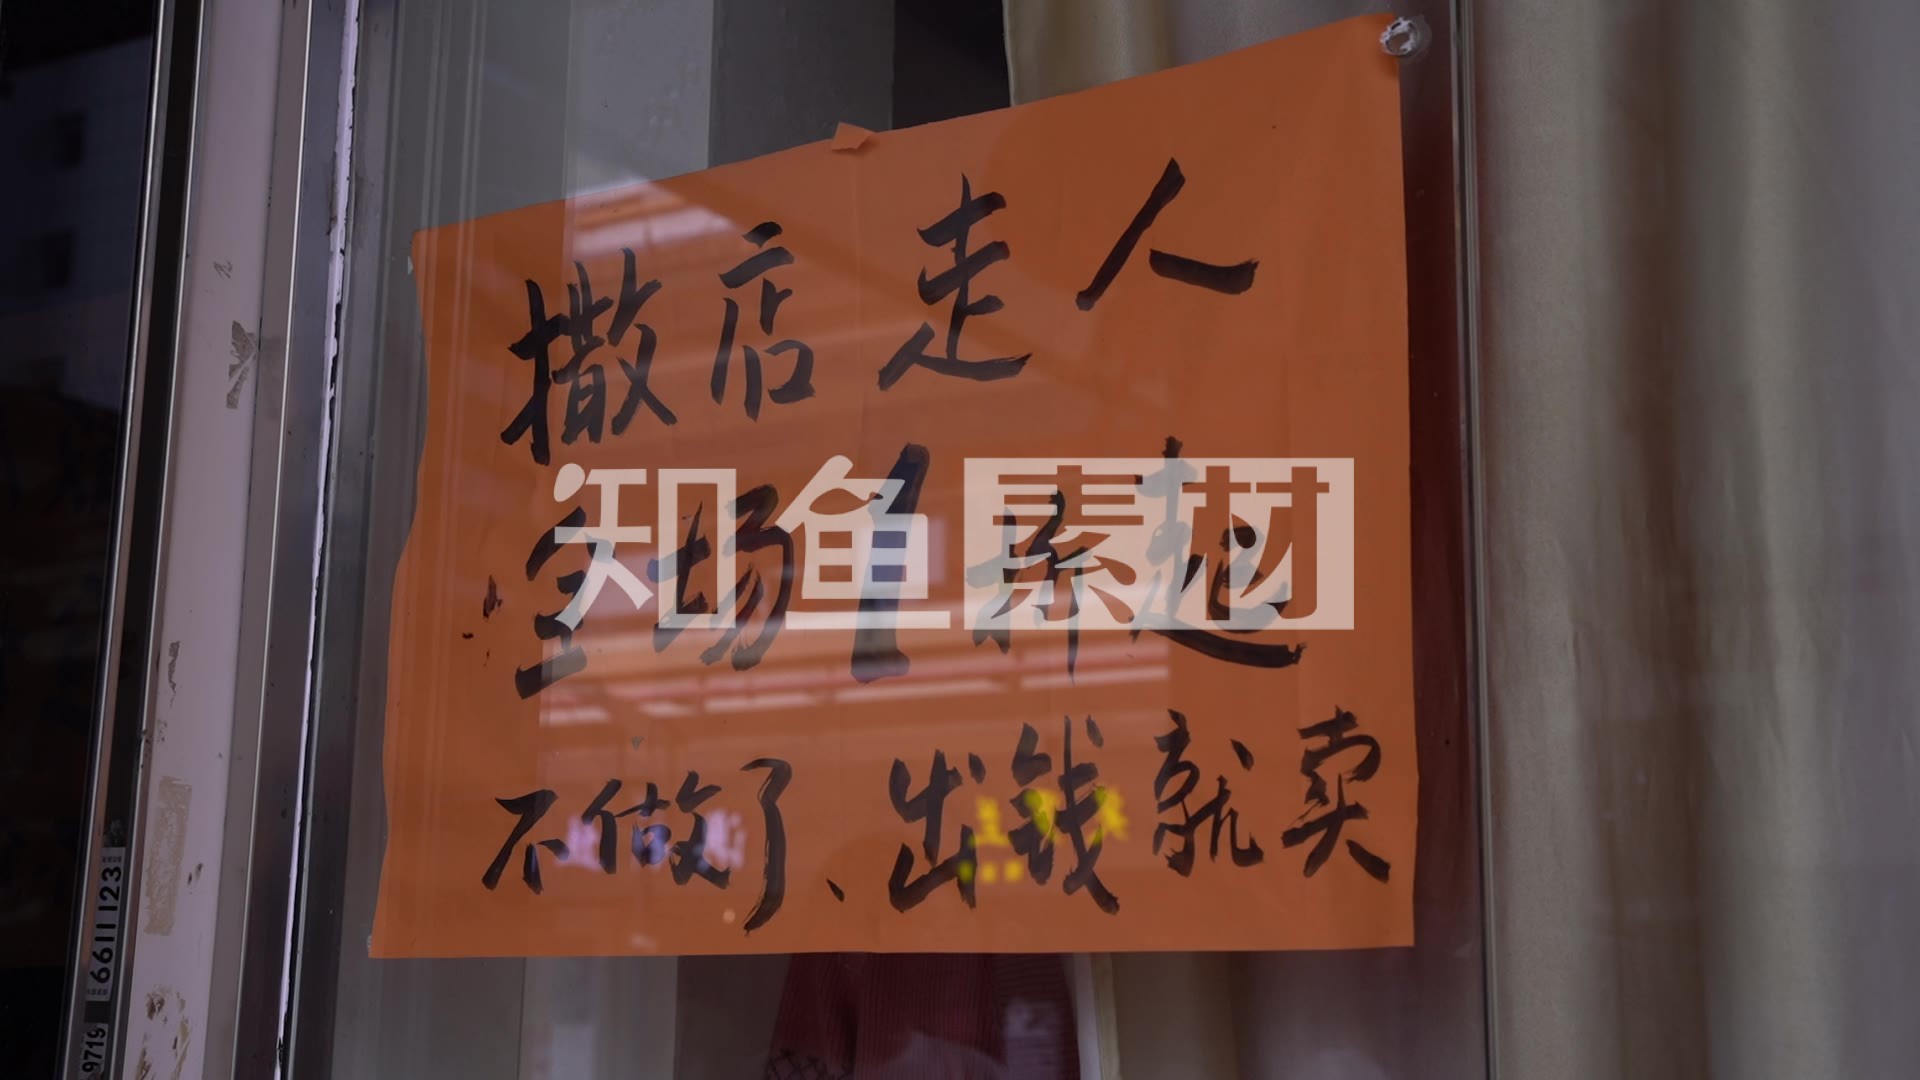 撒店走人
全场1折起
不做了、出钱就卖
知鱼素材
6611123
9719